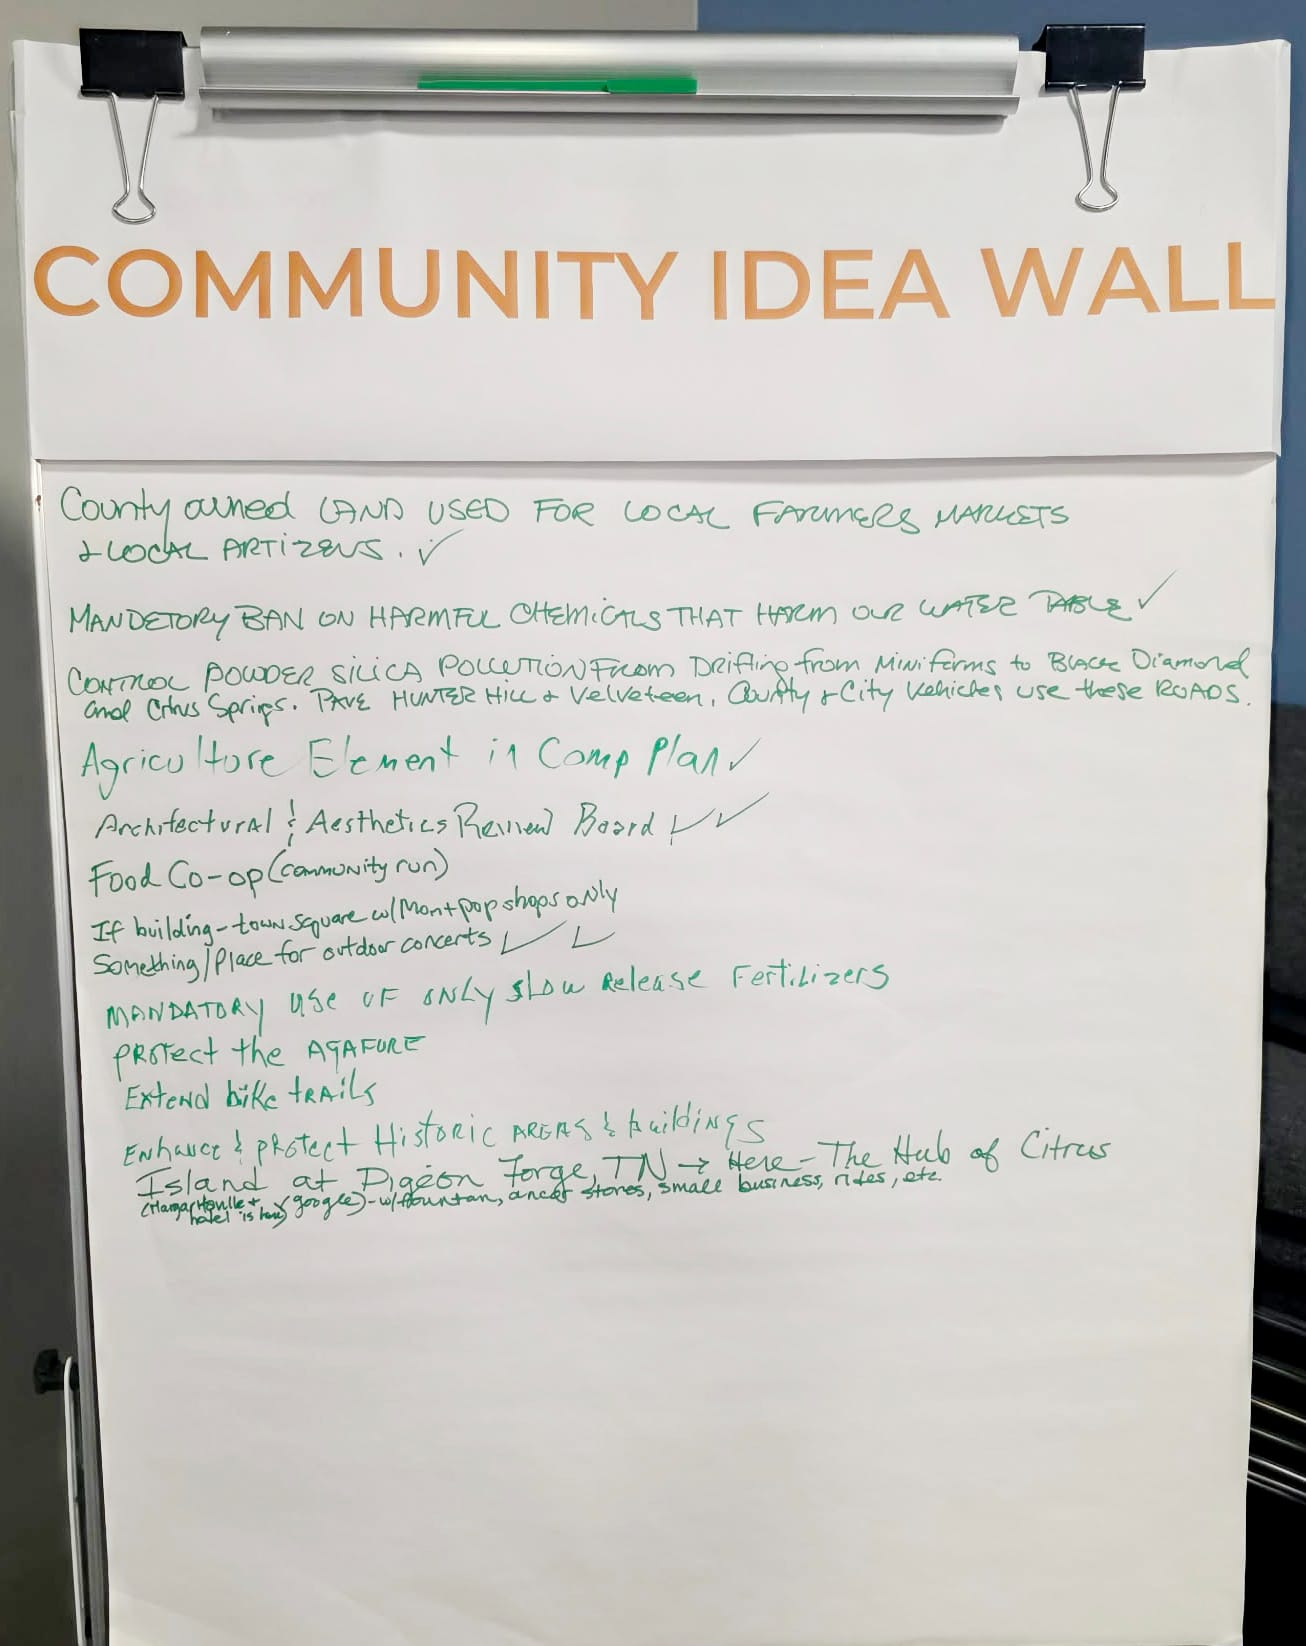 COMMUNITY IDEA WALL
County owned LAND USED FOR LOCAL FARMERS MARKETS
& LOCAL ARTIZENS. ✓
MANDETORY BAN ON HARMFUL CHEMICALS THAT HARM OUR WATER TABLE ✓
CONTROL POWDER SILICA POLLUTION FROM Drifting from Mini farms to Black Diamond
and Citrus Springs. PAVE HUNTER HILL & Velveteen, County & City Vehicles use these ROADS.
Agriculture Element in Comp Plan ✓
Architectural & Aesthetics Review Board ✓ ✓
Food Co-op (community run)
If building - town square w/ Mom + pop shops only
Something/Place for outdoor concerts ✓ ✓
MANDATORY use OF ONLY slow Release Fertilizers
PROTECT the AQAFURE
Extend bike TRAILS
Enhance & protect Historic AREAS & buildings
Island at Pigeon Forge, TN → Here - The Hub of Citrus
google) - w/ fountan, stores, small business, rides, etc.
hotel is here)